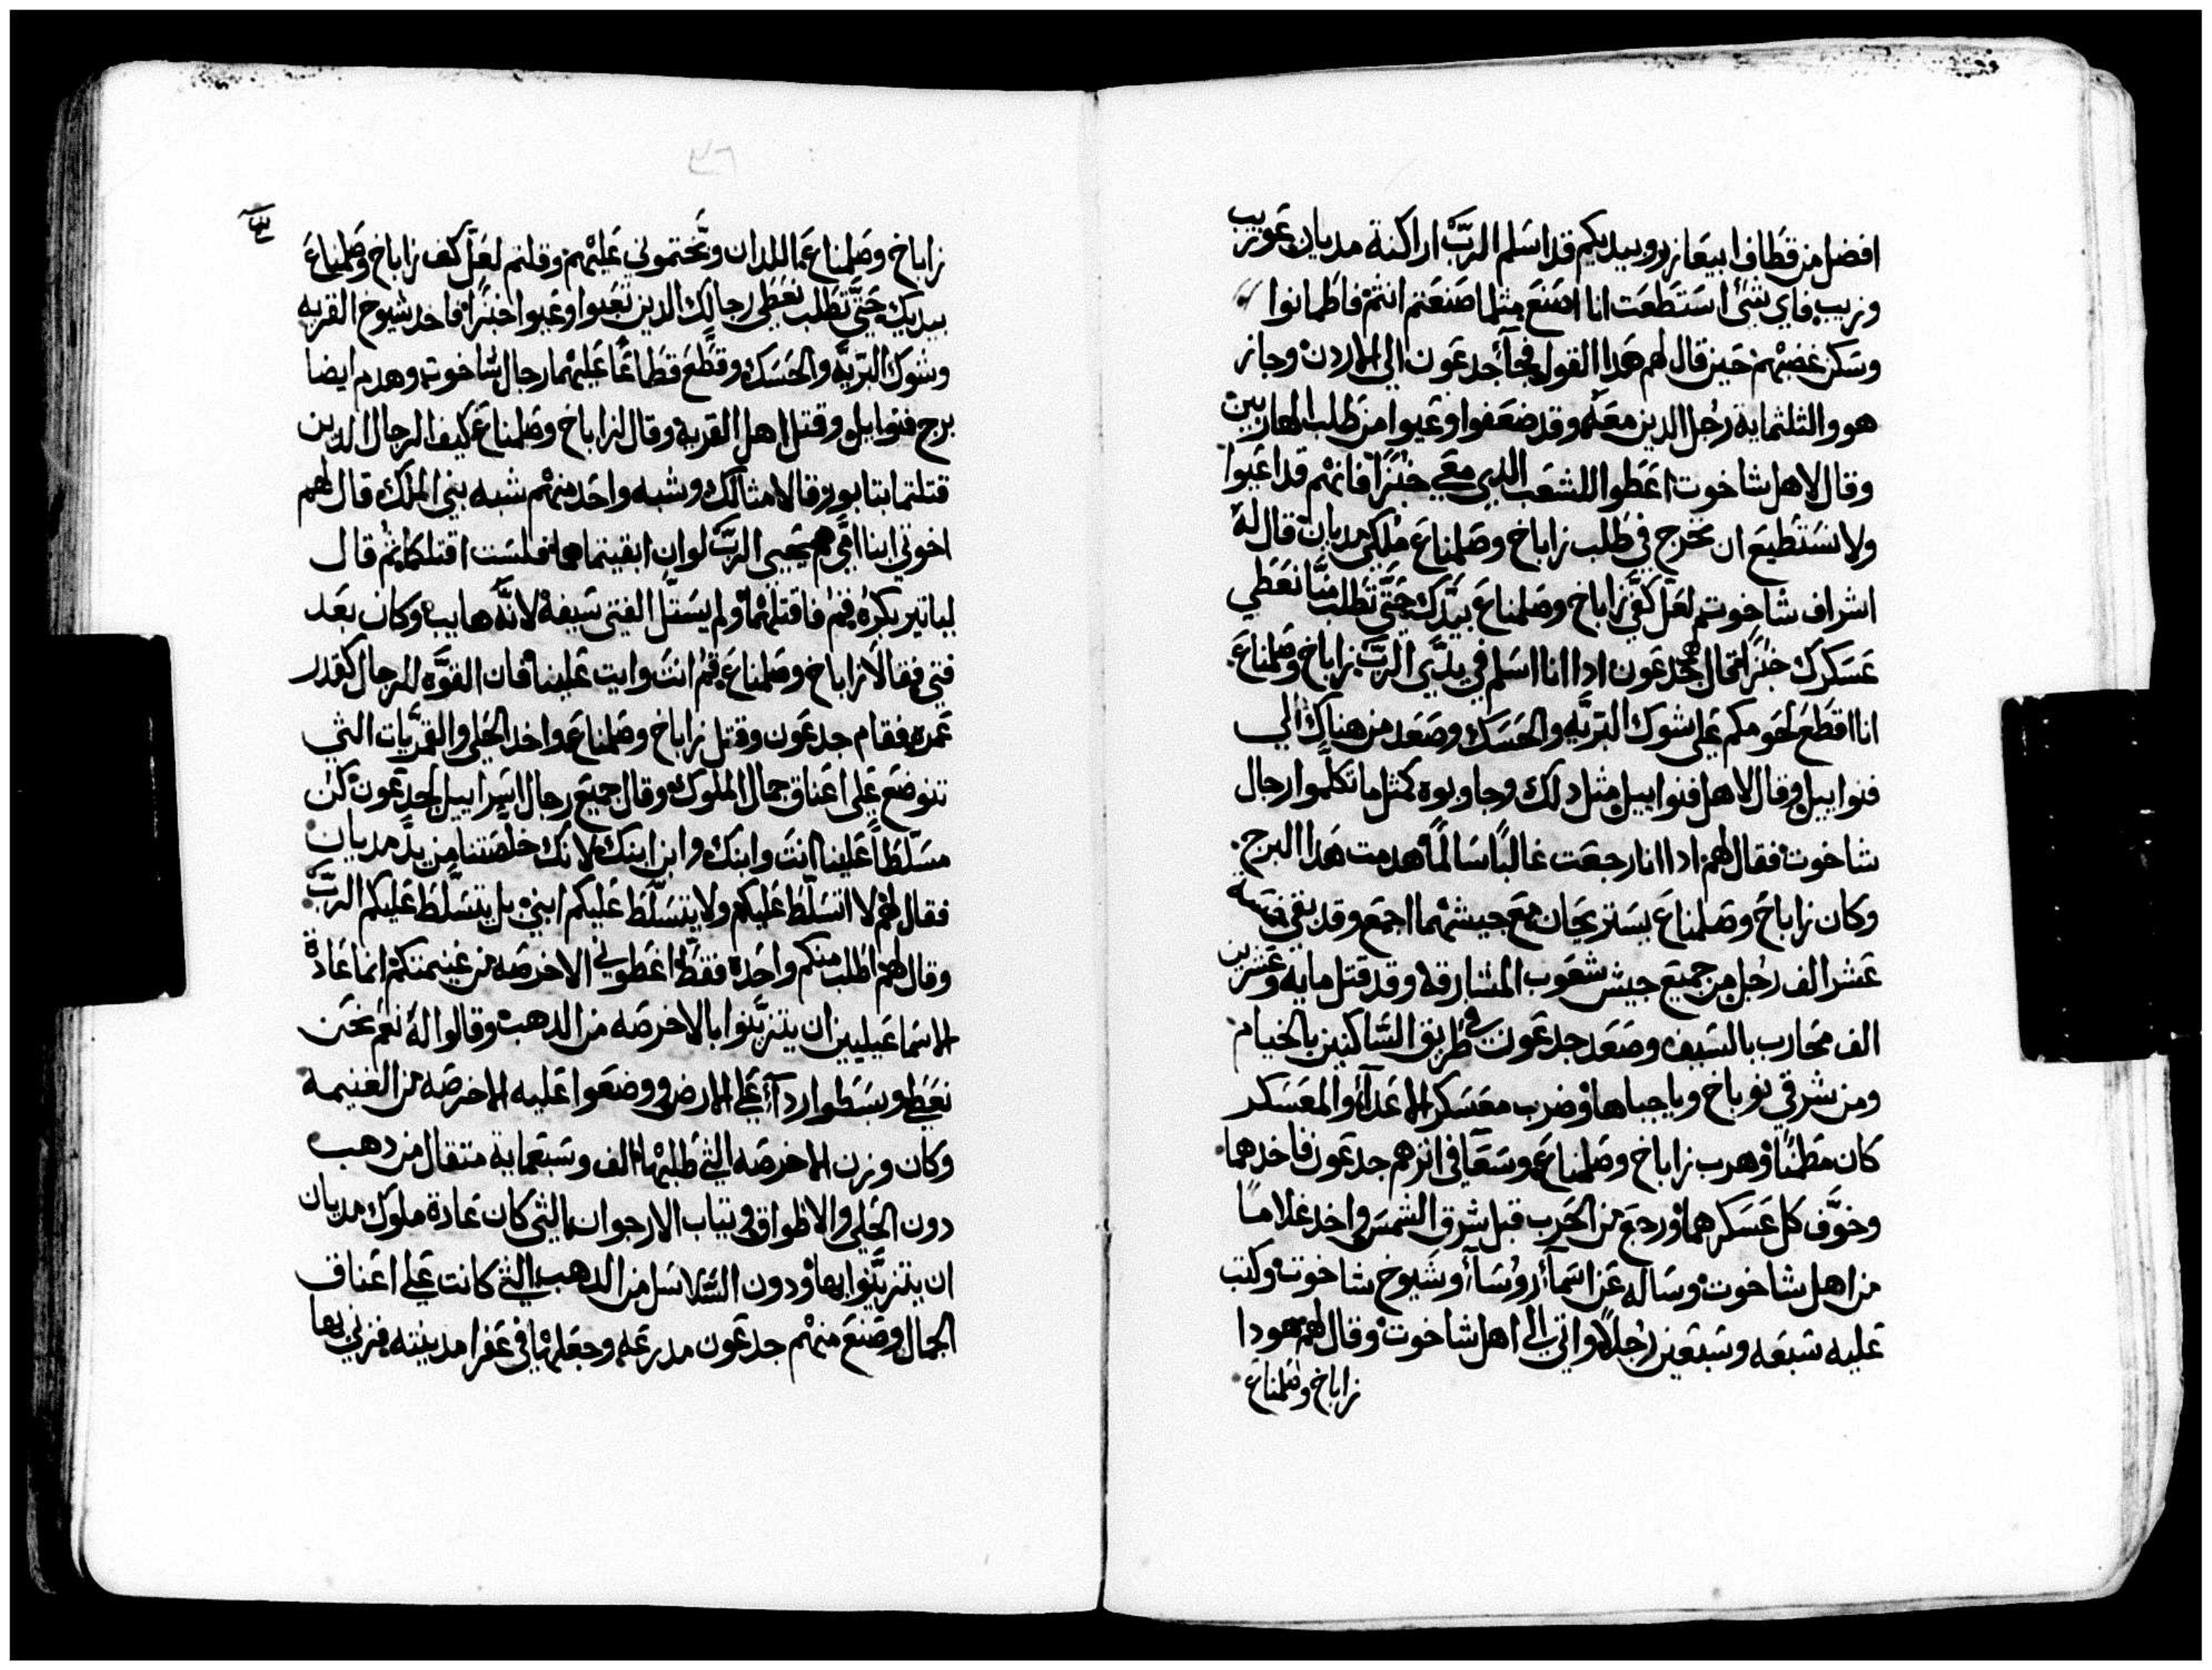 افضل من قطاف ابيعازر وبيديكم قد اسلم الرب اراكنة مديان عوريب
وزيب فاي شئ استطعت انا اصنع مثلما صنعتم انتم فاطمانوا
وسكن غضبهم حين قال لهم هدا القول فجآ جدعون الي الاردن وجاز
هو والثلثماية رجل الدين معه وقد ضعفوا وعيوا من طلب الهاربين
وقال لاهل شاخوت اعطوا للشعب الدي معي خبزا فانهم قد اعيوا
ولا نستطيع ان نخرج في طلب زاباخ وصلمناع ملكي مديان قال له
اشراف شاخوت لعل كف زاباخ وصلمناع بيدك حتي تطلب منا نعطي
عسكرك خبزا قال جدعون ادا انا اسلم في يدي الرب زاباخ وصلمناع
انا اقطع لحومكم علي شوك البريه والحسك وصعد من هناك الي
فنواييل وقال لاهل فنواييل مثل دلك وجاوبوه كمثل ما تكلموا رجال
شاخوت فقال لهم ادا انا رجعت غالبا سالما هدمت هدا البرج
وكان زاباخ وصلمناع يستريحان مع جيشهما اجمع وقد بقي خمسة
عشر الف رجل من جميع جيش شعوب المشارقه وقد قتل مايه وعشرين
الف محارب بالسيف وصعد جدعون في طريق الساكنين بالخيام
ومن شرقي نوباخ وياجباها وضرب معسكر الاعدآ والمعسكر
كان مطمنا وهرب زاباخ وصلمناع وسعا في اثرهم جدعون فاخدهما
وخوف كل عسكرهما ورجع من الحرب قبل شرق الشمس واخد غلاما
من اهل شاخوت وساله عن اسمآ روسآ وشيوخ شاخوت وكتب
عليه سبعه وسبعين رجلا واتي الي اهل شاخوت وقال لهم هودا
زاباخ وصلمناع
٣٦
زاباخ وصلمناع اللدان وبختموني عليهم وقلتم لعل كف زاباخ وصلمناع
بيديك حتي تطلب نعطي رجالك الدين تعبوا وعيوا خبزا فاخد شيوخ القريه
وشوك البريه والحسك وقطع قطاعا عليهما رجال شاخوت وهدم ايضا
برج فنوايل وقتل اهل القرية وقال لزاباخ وصلمناع كيف الرجال الدين
قتلتما بتابور وقالا مثالك وشبه واحد منهم شبه بني الملك قال لهم
اخوتي ابنا امي هم يحيي الرب لو ان ابقيتماهما فلست اقتلكما ثم قال
لياتير بكره قم فاقتلهما ولم يستل الفتي سيفه لانه هايب وكان بعد
فتي فقالا زاباخ وصلمناع قم انت وايت علينا فان القوه للرجال كقدر
عمره فقام جدعون وقتل زاباخ وصلمناع واخد الحلي والقمريات التي
تتوضع علي اعناق جمال الملوك وقال جميع رجال اسراييل لجدعون كن
مسلطا علينا انت وابنك وابن ابنك لانك خلصتنا من يد مديان
فقال لهم لا اتسلط عليكم ولا يتسلط عليكم ابني بل يتسلط عليكم الرب
وقال لهم اطلب منكم واحدة فقط اعطوني الاخرصه من غنيمتكم انما عادة
الاسماعيليين ان يتزينوا بالاخرصه من الدهب وقالوا له نعم نحن
نعطي وبسطوا ردآ علي الارض ووضعوا عليه الاخرصه من الغنيمه
وكان وزن الاخرصه التي طلبها الف وسبعماية متقال من دهب
دون الحلي والاطواق وتياب الارجوان التي كان عادة ملوك مديان
ان يتزينوا بها ودون السلاسل من الدهب التي كانت علي اعناق
الجمال وصنع منهم جدعون مدرعه وجعلها في عفرا مدينته فزني بها